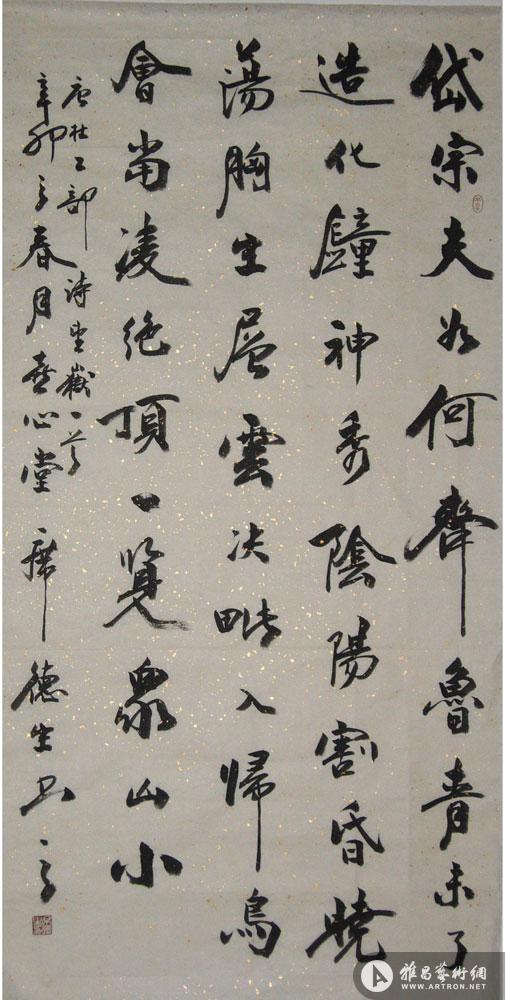 岱宗夫如何齊魯青未了
造化鐘神秀陰陽割昏曉
蕩胸生層雲决毗入歸鳥
會當凌絕頂一覽衆山小
唐杜工部詩望嶽一首
辛卯之春月心堂席德生书
雅昌藝術網
WWW.ARTRON.NET